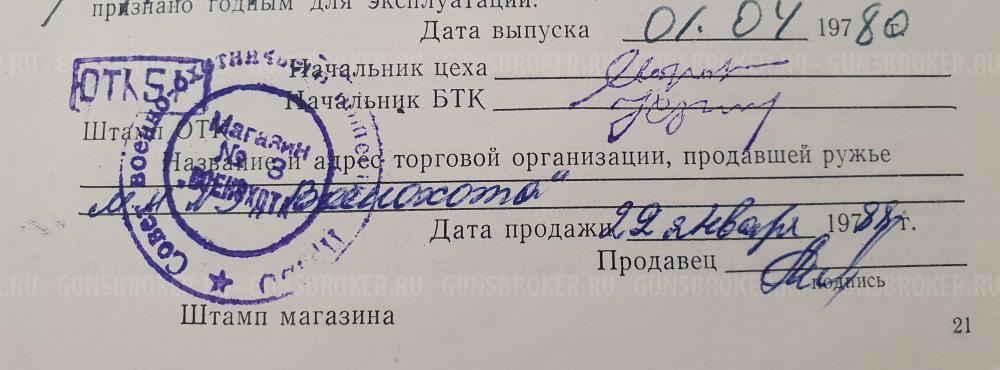 признано годным для эксплуатации.
Дата выпуска 01.04 197 80 г.
Начальник цеха
Начальник БТК
ОТК 5
Штамп ОТК
Название и адрес торговой организации, продавшей ружье
"Военохота"
Дата продажи 22 января 197 г.
Продавец
подпись
Магазин
№ 8
"ВОЕНОХОТА"
военно-охотничий
Штамп магазина
21
GUNSBROKER.RU - GUNSBROKER.RU - GUNSBROKER.RU